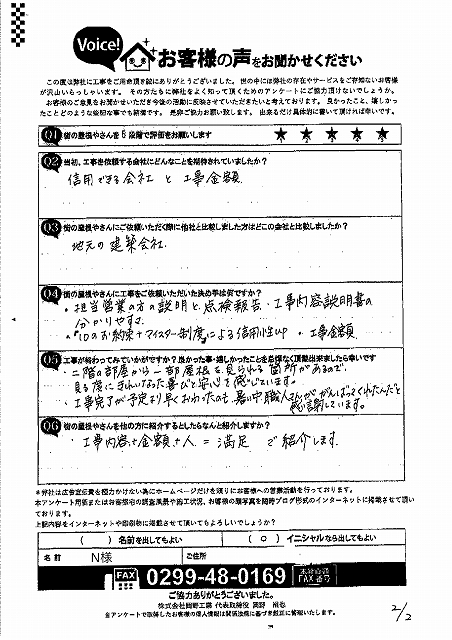 Voice!
お客様の声をお聞かせください
この度は弊社に工事をご用命頂き誠にありがとうございました。世の中には弊社の存在やサービスをご存知ないお客様
が沢山いらっしゃいます。その方たちに弊社をよく知って頂くためのアンケートにご協力頂けないでしょうか。
お客様のご意見をお聞かせいただき今後の活動に反映させていただきたいと考えております。良かったこと、嬉しかっ
たことどのような些細な事でも結構です。是非ご協力お願い致します。出来るだけ具体的に書いて頂ければ幸いです。
Q1 街の屋根やさんを5段階で評価をお願いします ★ ★ ★ ★ ★
Q2 当初、工事を依頼する会社にどんなことを期待されていましたか?
信用できる会社 と 工事金額
Q3 街の屋根やさんにご依頼いただく際に他社と比較しました方はどこの会社と比較しましたか?
地元の建築会社
Q4 街の屋根やさんに工事をご依頼いただいた決め手は何ですか?
・担当営業の方の説明と、点検報告・工事内容説明書の
分かりやすさ
・10のお約束+マイスター制度による信用性UP ・工事金額
Q5 工事が終わってみていかがですか?良かった事・嬉しかったことを忌憚なく頂戴出来ましたら幸いです
・二階の部屋から一部屋根を見られる箇所があるので、
見る度にきれいなった喜びと安心を感じています。
・工事完了が予定より早くおわったのも、暑い中職人さんががんばってくれたんだと
感謝しています。
Q6 街の屋根やさんを他の方に紹介するとしたらなんと紹介しますか?
・工事内容+金額+人 = 満足 で紹介します
*弊社は広告宣伝費を極力かけない為にホームページだけを頼りにお客様への営業活動を行っております。
本アンケート用紙またはお客様宅の調査風景や施工状況、お客様の顔写真を随時ブログ形式のインターネットに掲載させて頂いて
おります。
上記内容をインターネットや印刷物に掲載させて頂いてもよろしいでしょうか?
( ) 名前を出してもよい ( ○ ) イニシャルなら出してもよい
名前 N様 ご住所
FAX 0299-48-0169 FAX番号
ご協力ありがとうございました。
株式会社岡野工業 代表取締役 岡野
当アンケートで取得したお客様の個人情報は関係法規に基づき厳正に管理いたします。
2/2